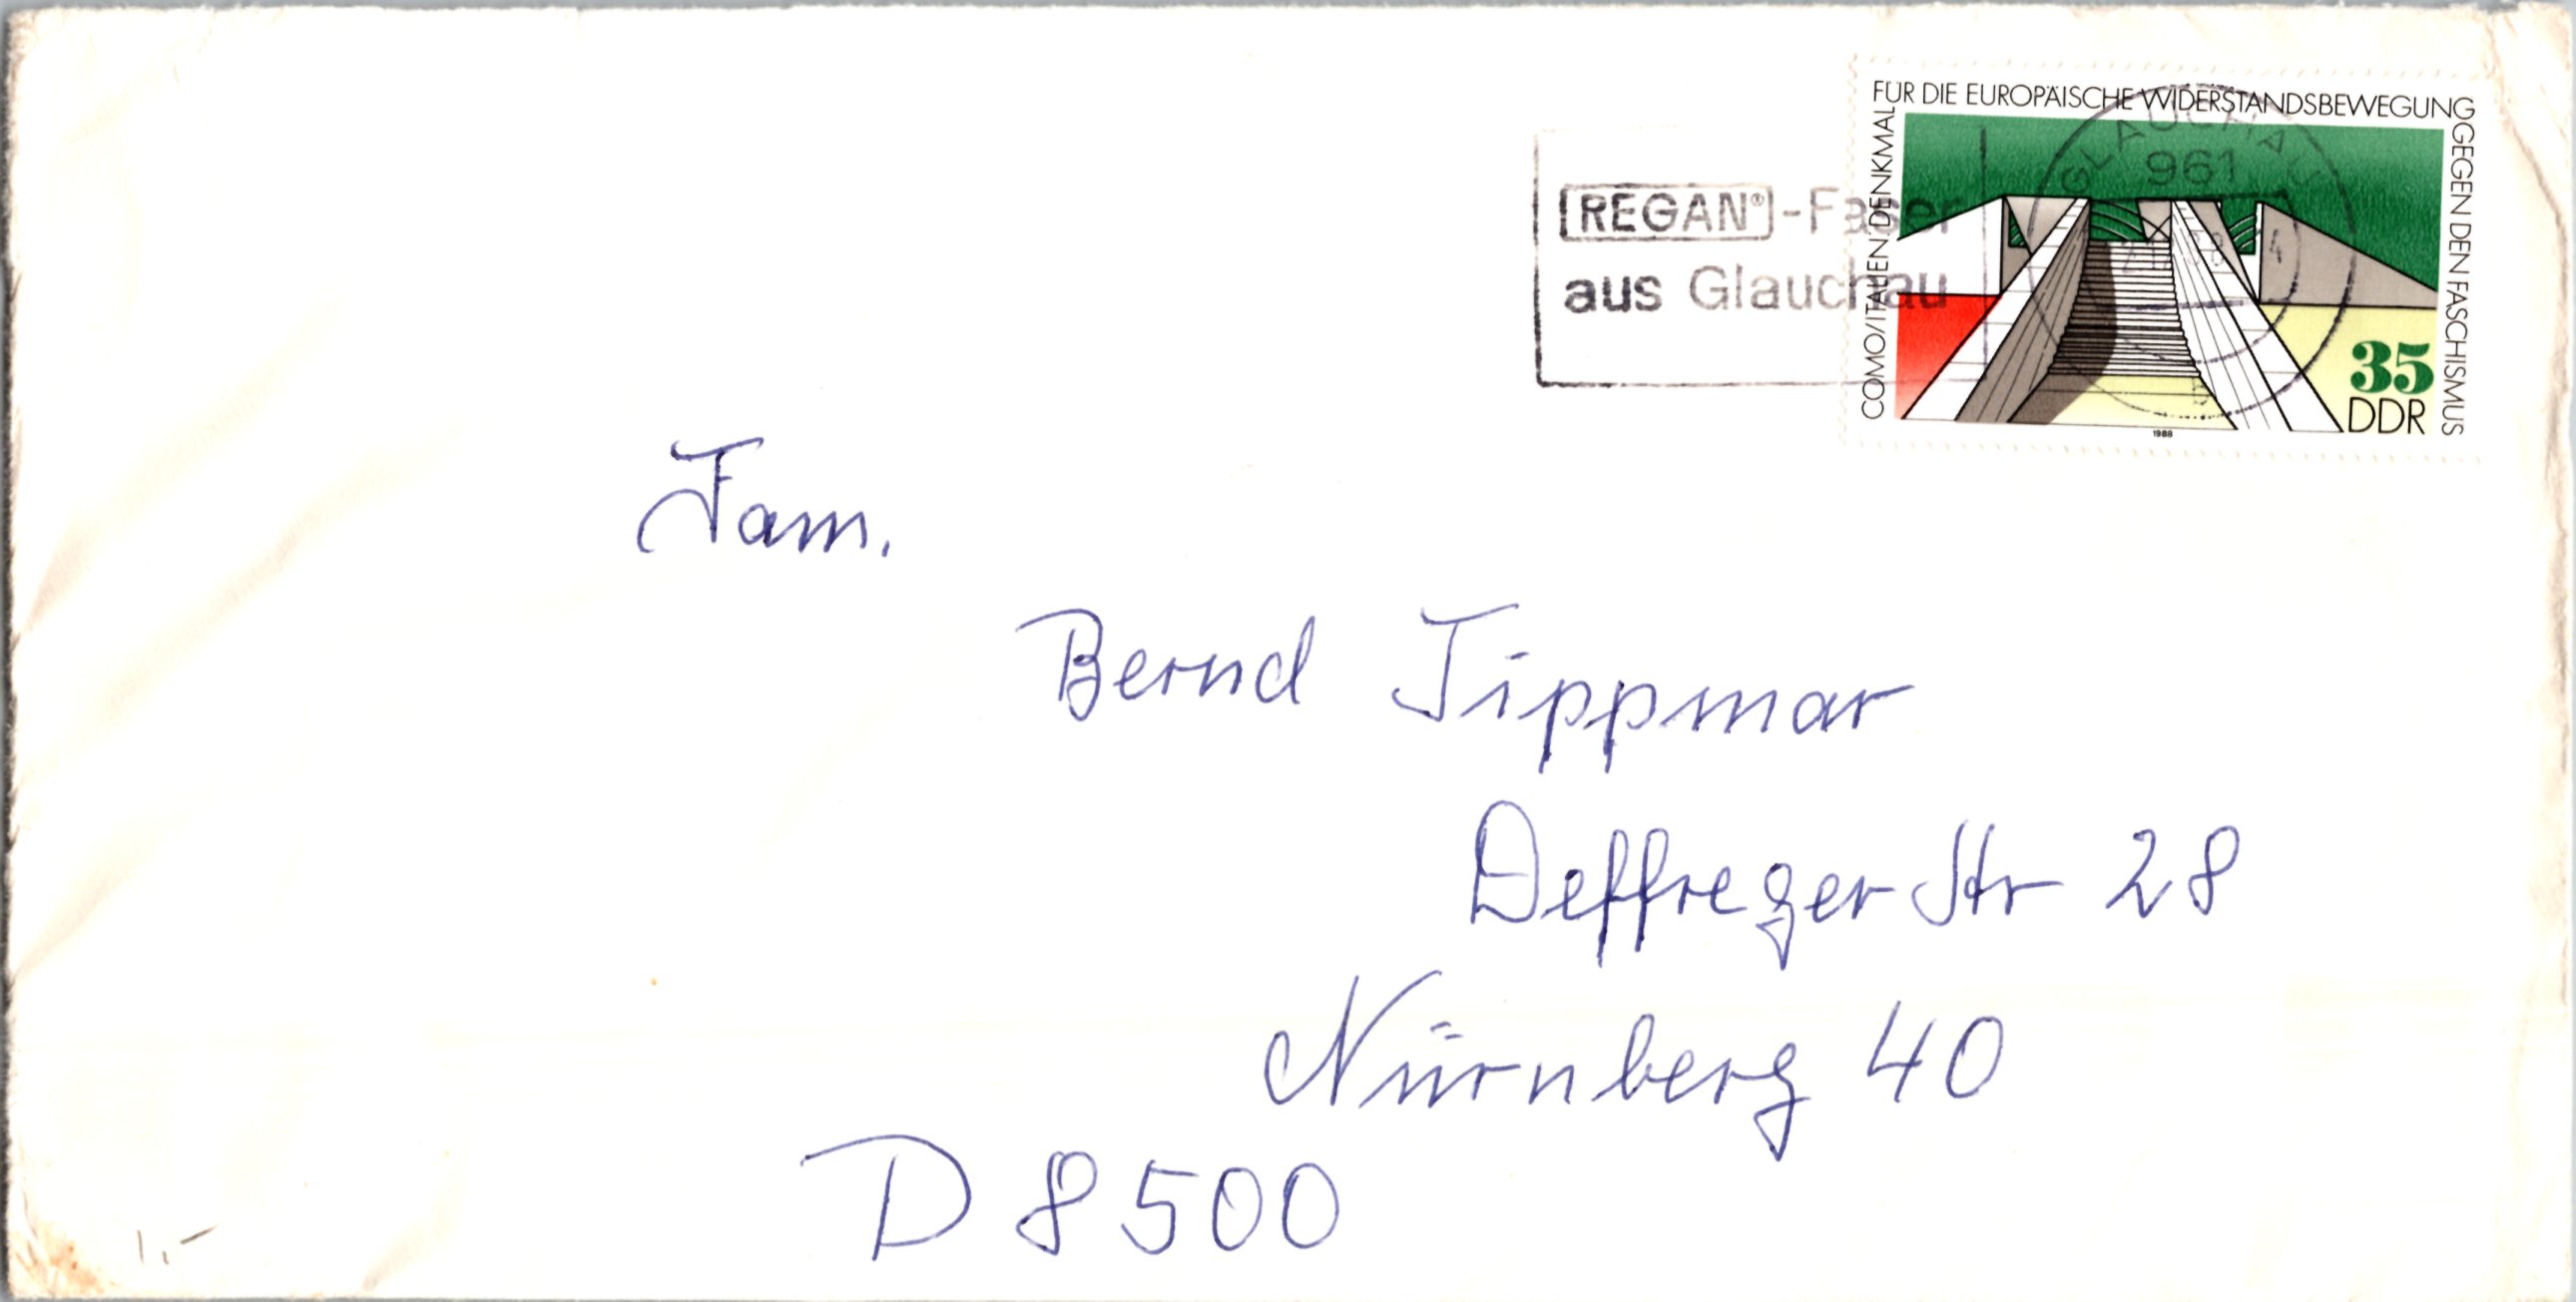 FÜR DIE EUROPÄISCHE WIDERSTANDSBEWEGUNG
GEGEN DEN FASCHISMUS
COMO/ITALIEN DENKMAL
35
DDR
1988
GLAUCHAU
961
REGAN® -Faser
aus Glauchau
Fam.
Bernd Tippmar
Deffreger Str 28
Nürnberg 40
D 8500
1,-